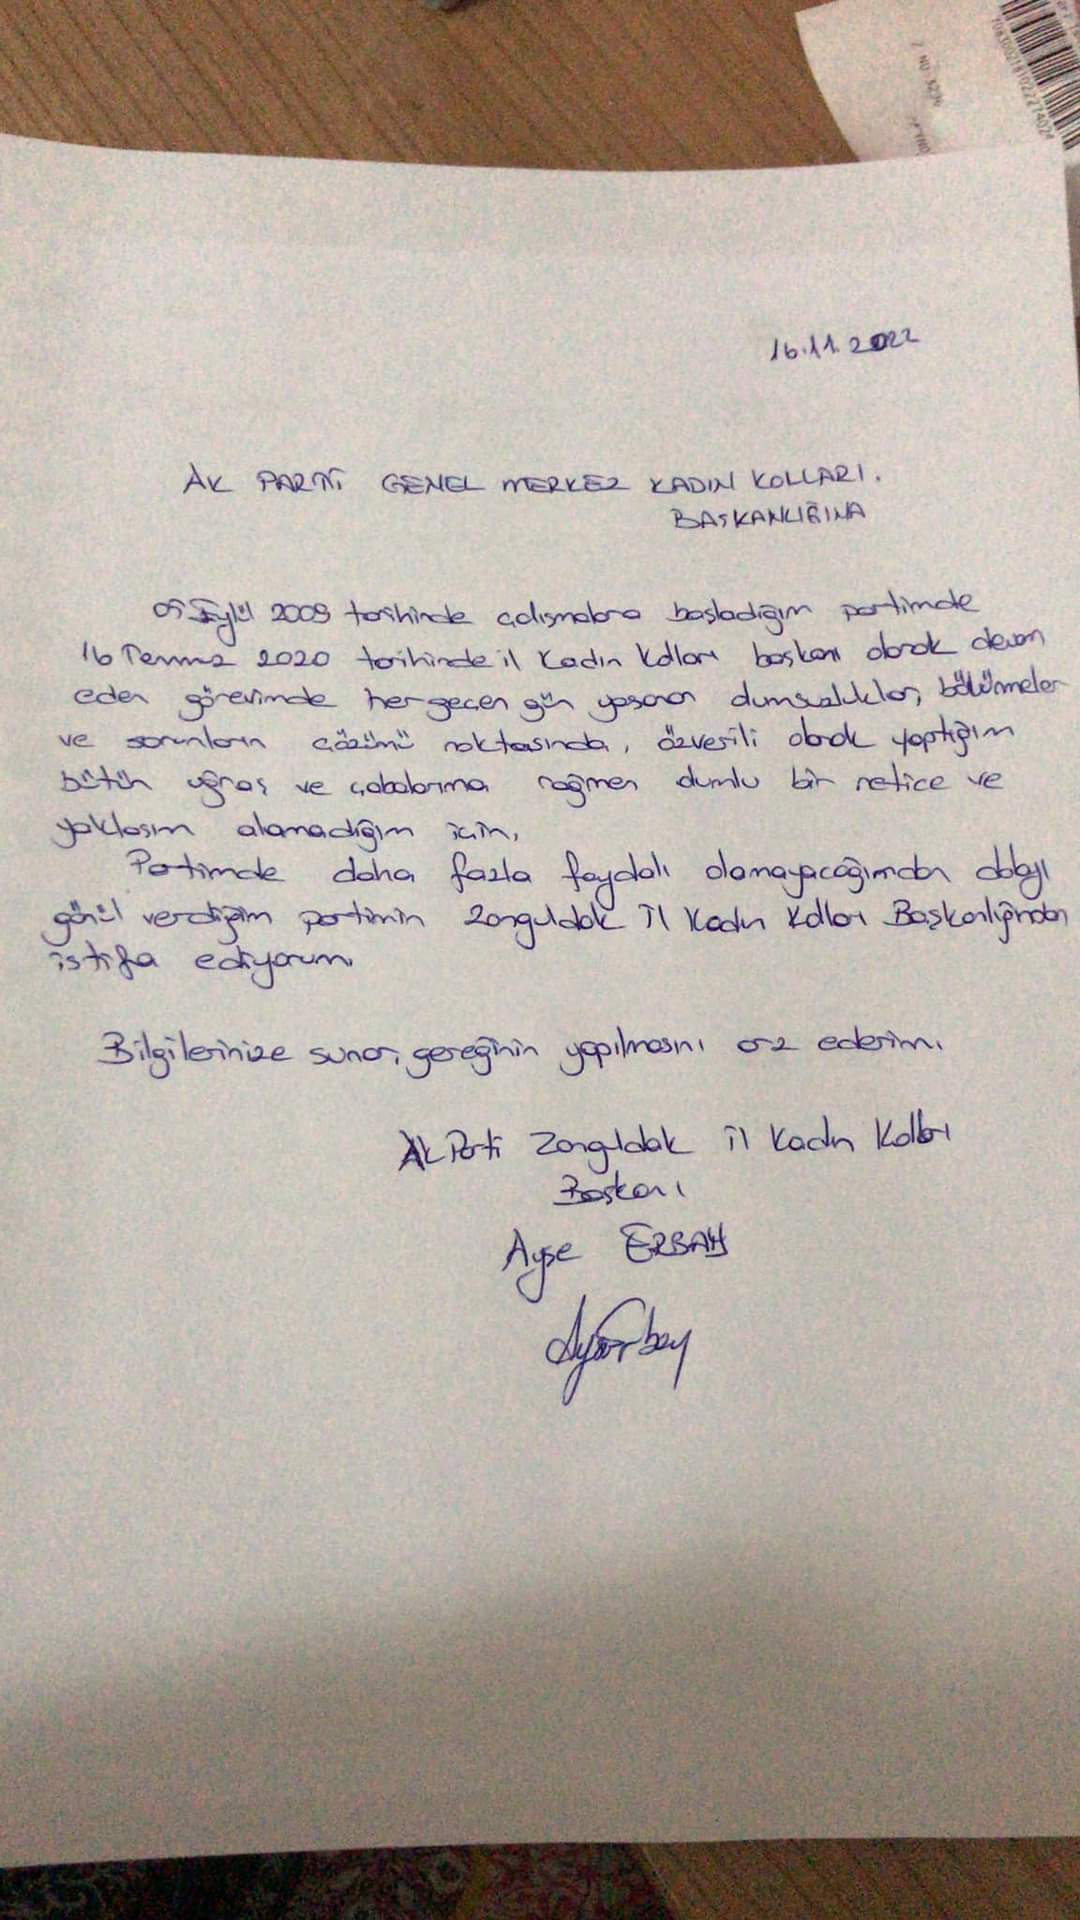 16.11.2022
AK PARTİ GENEL MERKEZ KADIN KOLLARI.
BAŞKANLIĞINA
05 Eylül 2009 tarihinde çalışmalara başladığım partimde
16 Temmuz 2020 tarihinde il Kadın Kolları başkanı olarak devam
eden görevimde her geçen gün yaşanan olumsuzluklar, bölünmeler
ve sorunların çözümü noktasında, özverili olarak yaptığım
bütün uğraş ve çabalarıma rağmen olumlu bir netice ve
yaklaşım alamadığım için,
Partimde daha fazla faydalı olamayacağımdan dolayı
gönül verdiğim partimin Zonguldak İl Kadın Kolları Başkanlığından
istifa ediyorum.
Bilgilerinize sunar, gereğinin yapılmasını arz ederim.
AK Parti Zonguldak İl Kadın Kolları
Başkanı
Ayşe ERBAY